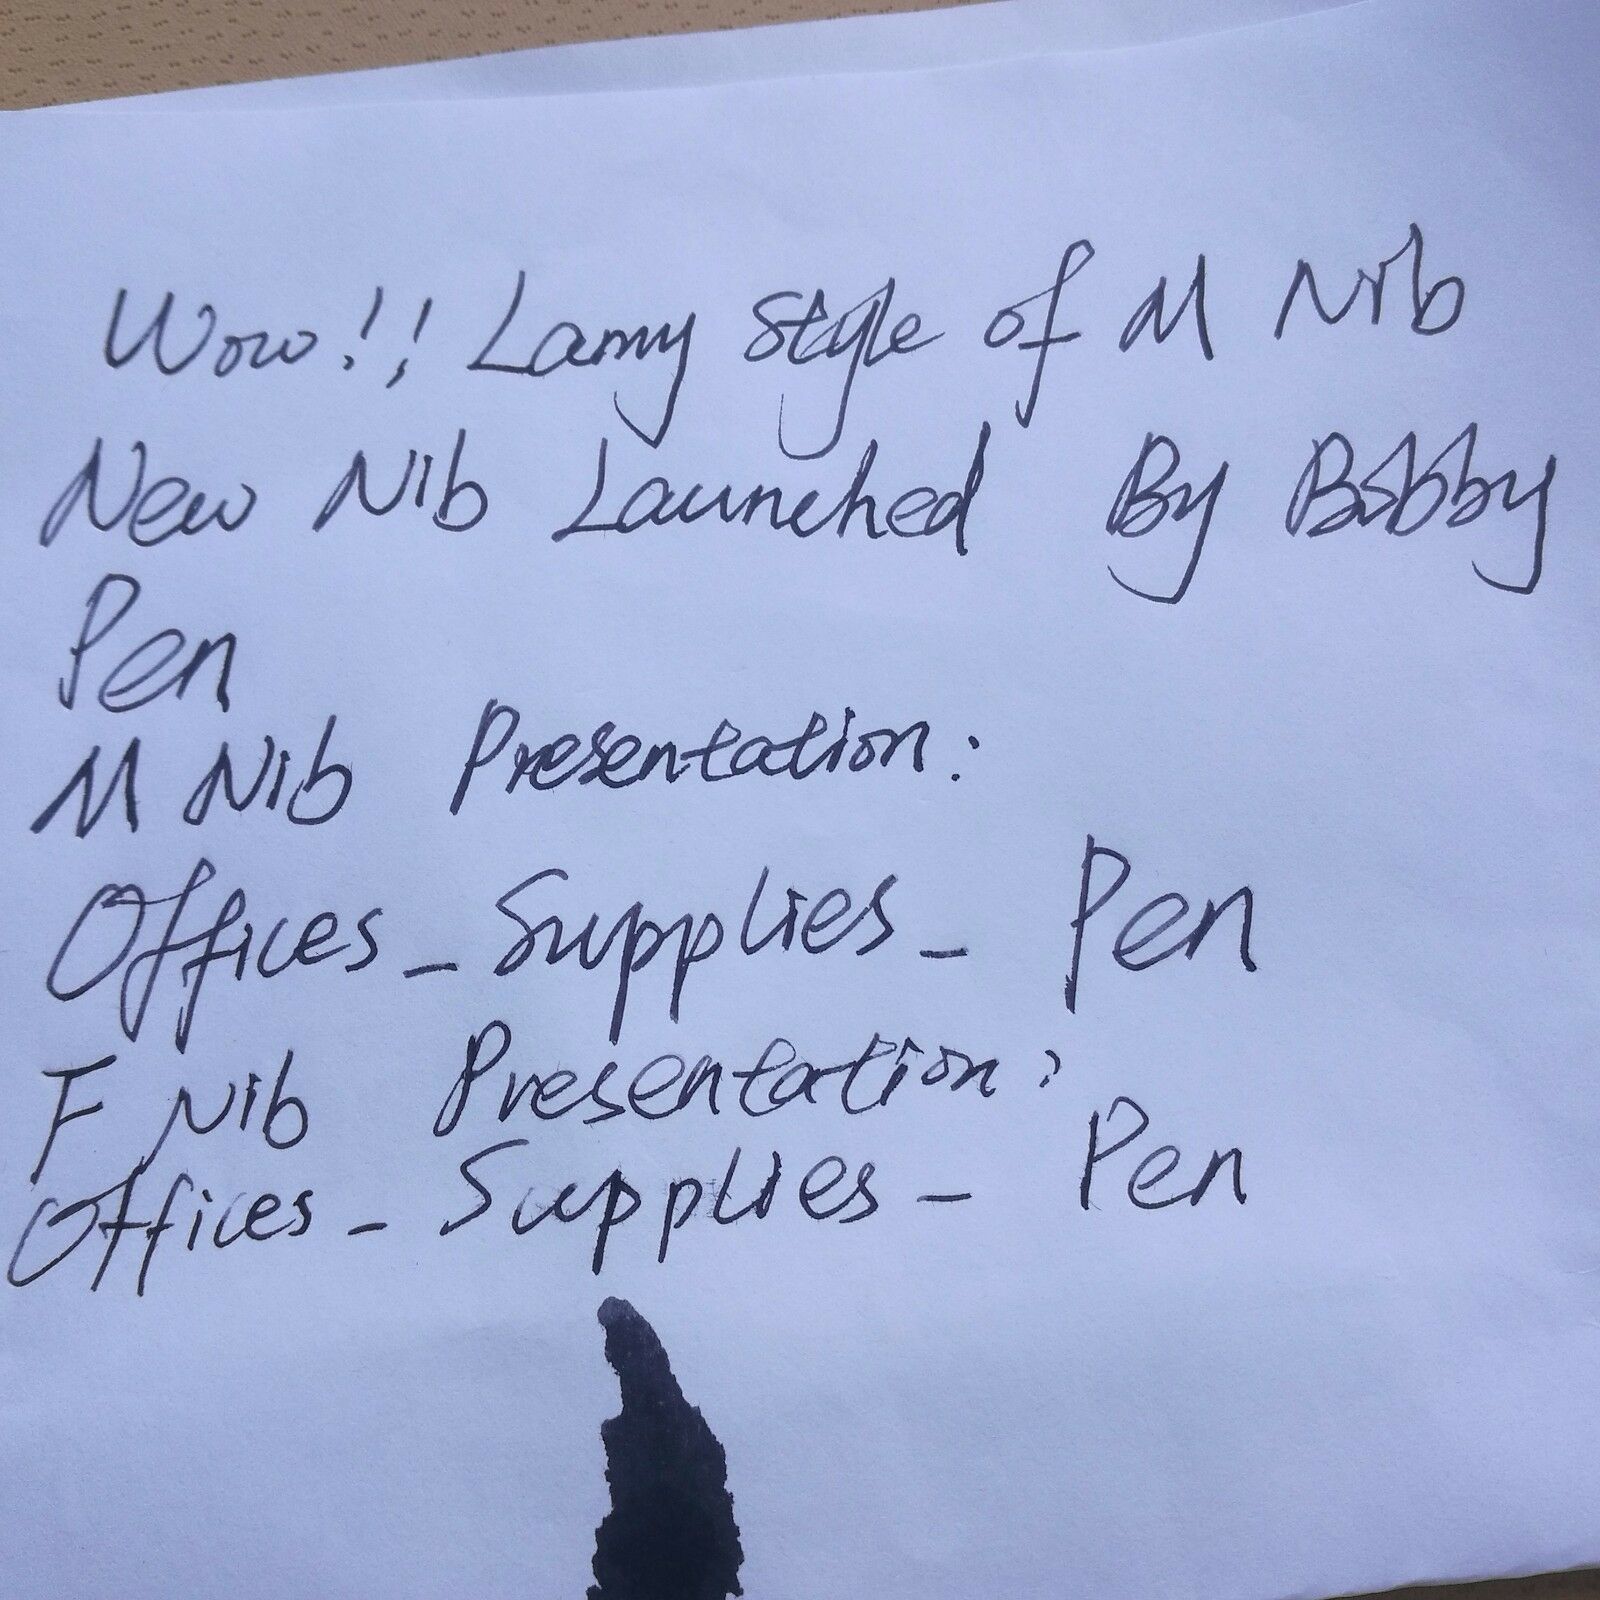 Wow!! Lamy Style of M Nib
New Nib Launched By Bobby
Pen
M Nib Presentation:
Offices_Supplies_Pen
F Nib Presentation:
Offices_Supplies_Pen